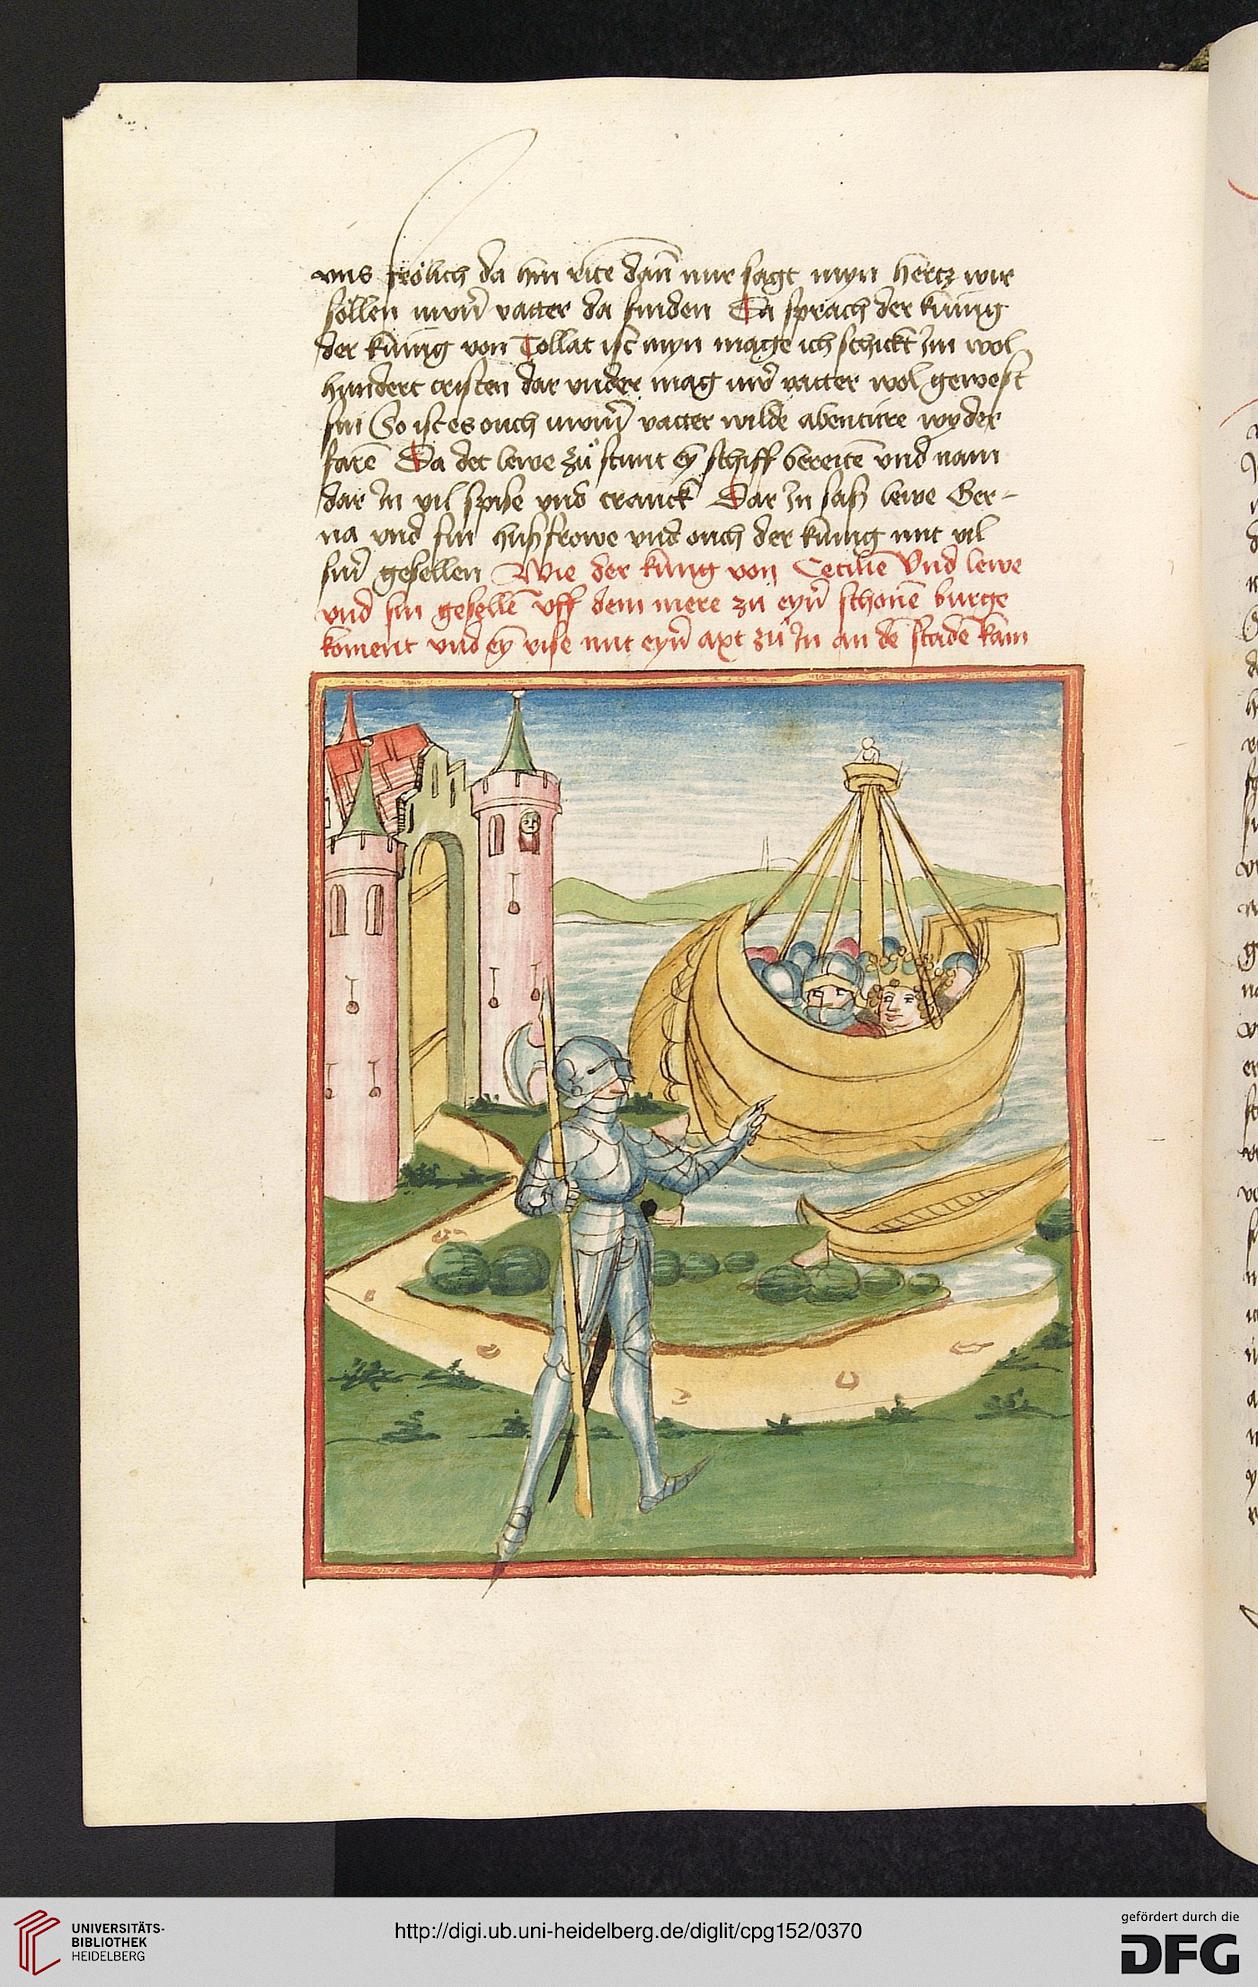 uns frölich da hin rite dañ mir sagt myn hertz wir
söllen uwrñ vatter da finden Da sprach der kunig
der kunig von Tollat ist myn mage ich schickt Im wol
hundert cristen dar under mag uwr vatter wol gewest
sin So ist es ouch uwrm vatter wilde abenture wyder
farē Da det lewe zů stunt eȳ schiff bereitē und nam
dar In vil spise und tranck Dar In saß lewe Ger-
na und sin hußfrowe und ouch der kunig mit vil
sinr gesellen Wie der kunig von Cecilie Und lewe
und sin gesellē uff dem mere zu eynr schonē burge
koment und eȳ rise mit eynr axt zů In an dē stadē kam
UNIVERSITÄTS-
BIBLIOTHEK
HEIDELBERG
http://digi.ub.uni-heidelberg.de/diglit/cpg152/0370
gefördert durch die
DFG